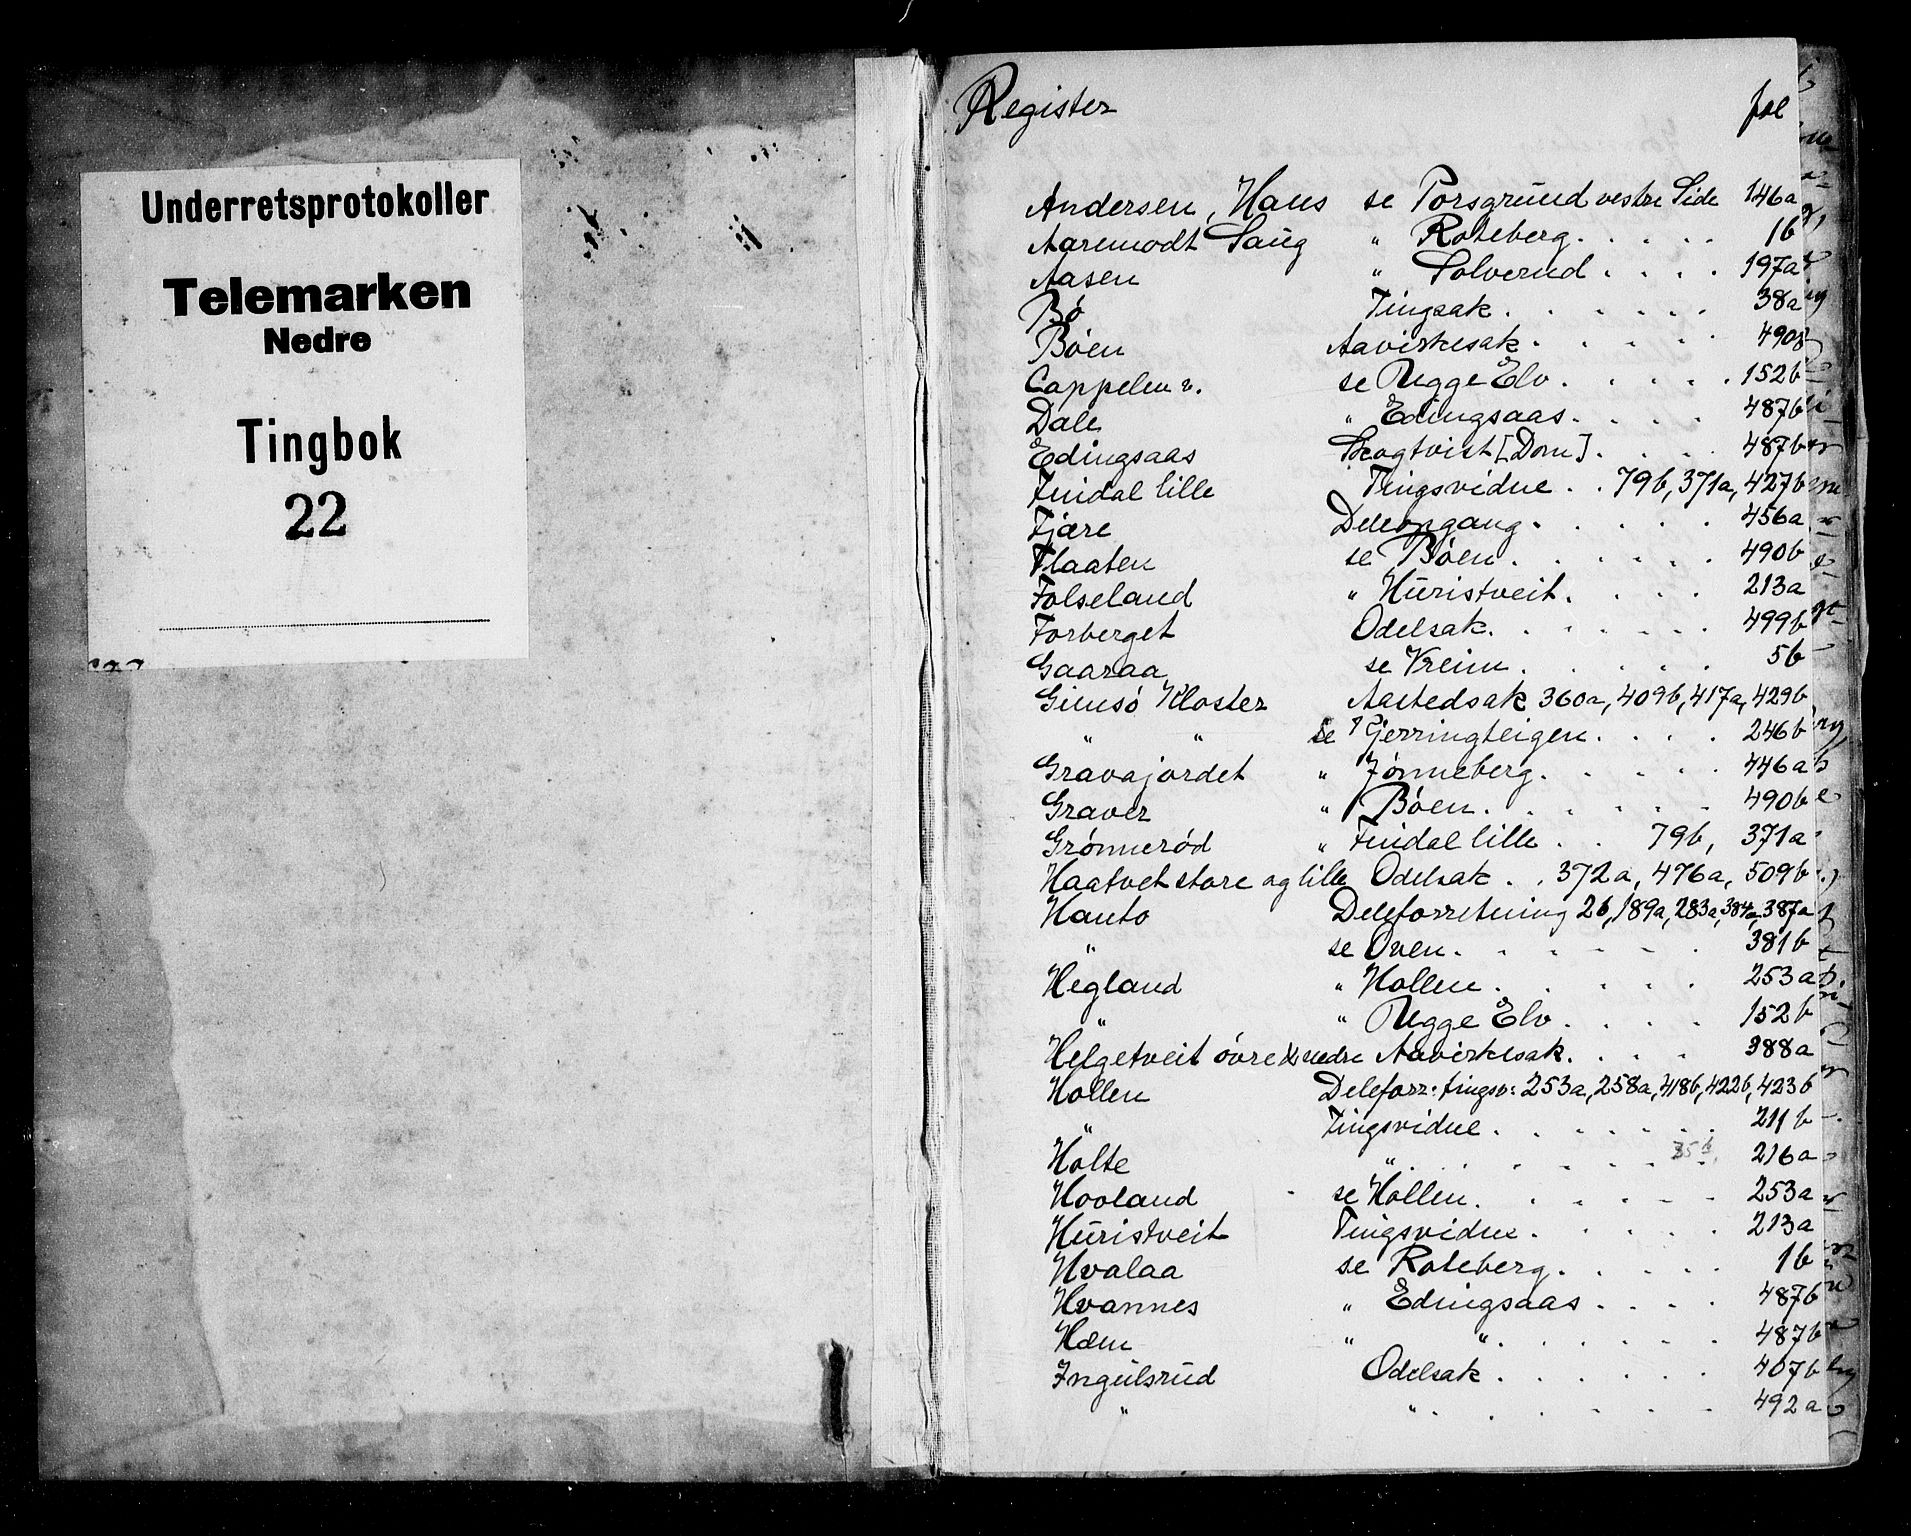 Underretsprotokoller
Telemarken
Nedre
Tingbok
22
Register fol
Andersen, Hans se Porsgrund vestre Side 146a
Aaremodt Saug " Roteberg. . . . . 1b
Aasen " Solverud . . . . 197a
Bö Tingsak. . . . . . 38a
Böen Aavirkesak. . . . . 490b
Cappelen v. se Rugge Elv. . . . . 152b
Dale " Edingsaas. . . . 487b
Edingsaas Skogtvist [Dom]. . . . 487b
Findal lille Tingsvidne . . 79b, 371a, 427b
Fjære Deleopgang. . . . . 456a
Flaaten se Böen. . . . . . 490b
Folseland " Huristveit. . . . 213a
Forberget Odelsak. . . . . . 499b
Gaaraa se Kreim. . . . . 5b
Gimsö Kloster Aastedsak 360a, 409b, 417a, 429b
" " se Gjerringteigen. . . . 246b
Gravajordet " Jönneberg. . . . . 446a
Graver " Böen. . . . . . 490b
Grönneröd " Findal lille . . 79b, 371a
Haatvet store og lille Odelsak . . 372a, 476a, 509b
Hauto Deleforretning 2b, 189a, 283a, 384a, 387a
" se Oven. . . . . . 381b
Hegland " Hollen. . . . . 253a
" " Rugge Elv. . . . 152b
Helgetveit övre & nedre Aavirkesak. . . . 388a
Hollen Deleforr: tingsv: 253a, 258a, 418b, 422b, 423b
" Tingsvidne. . . . . . 211b
Holte " . . . . . . 35b, 216a
Hooland se Hollen. . . . . 253a
Huristveit Tingsvidne. . . . . 213a
Hvalaa se Roteberg. . . . . 1b
Hvannes " Edingsaas . . . . 487b
Hæm " " . . . . . 487b
Ingulsrud Odelsak . . . . . . 407b
" " . . . . . . 492a